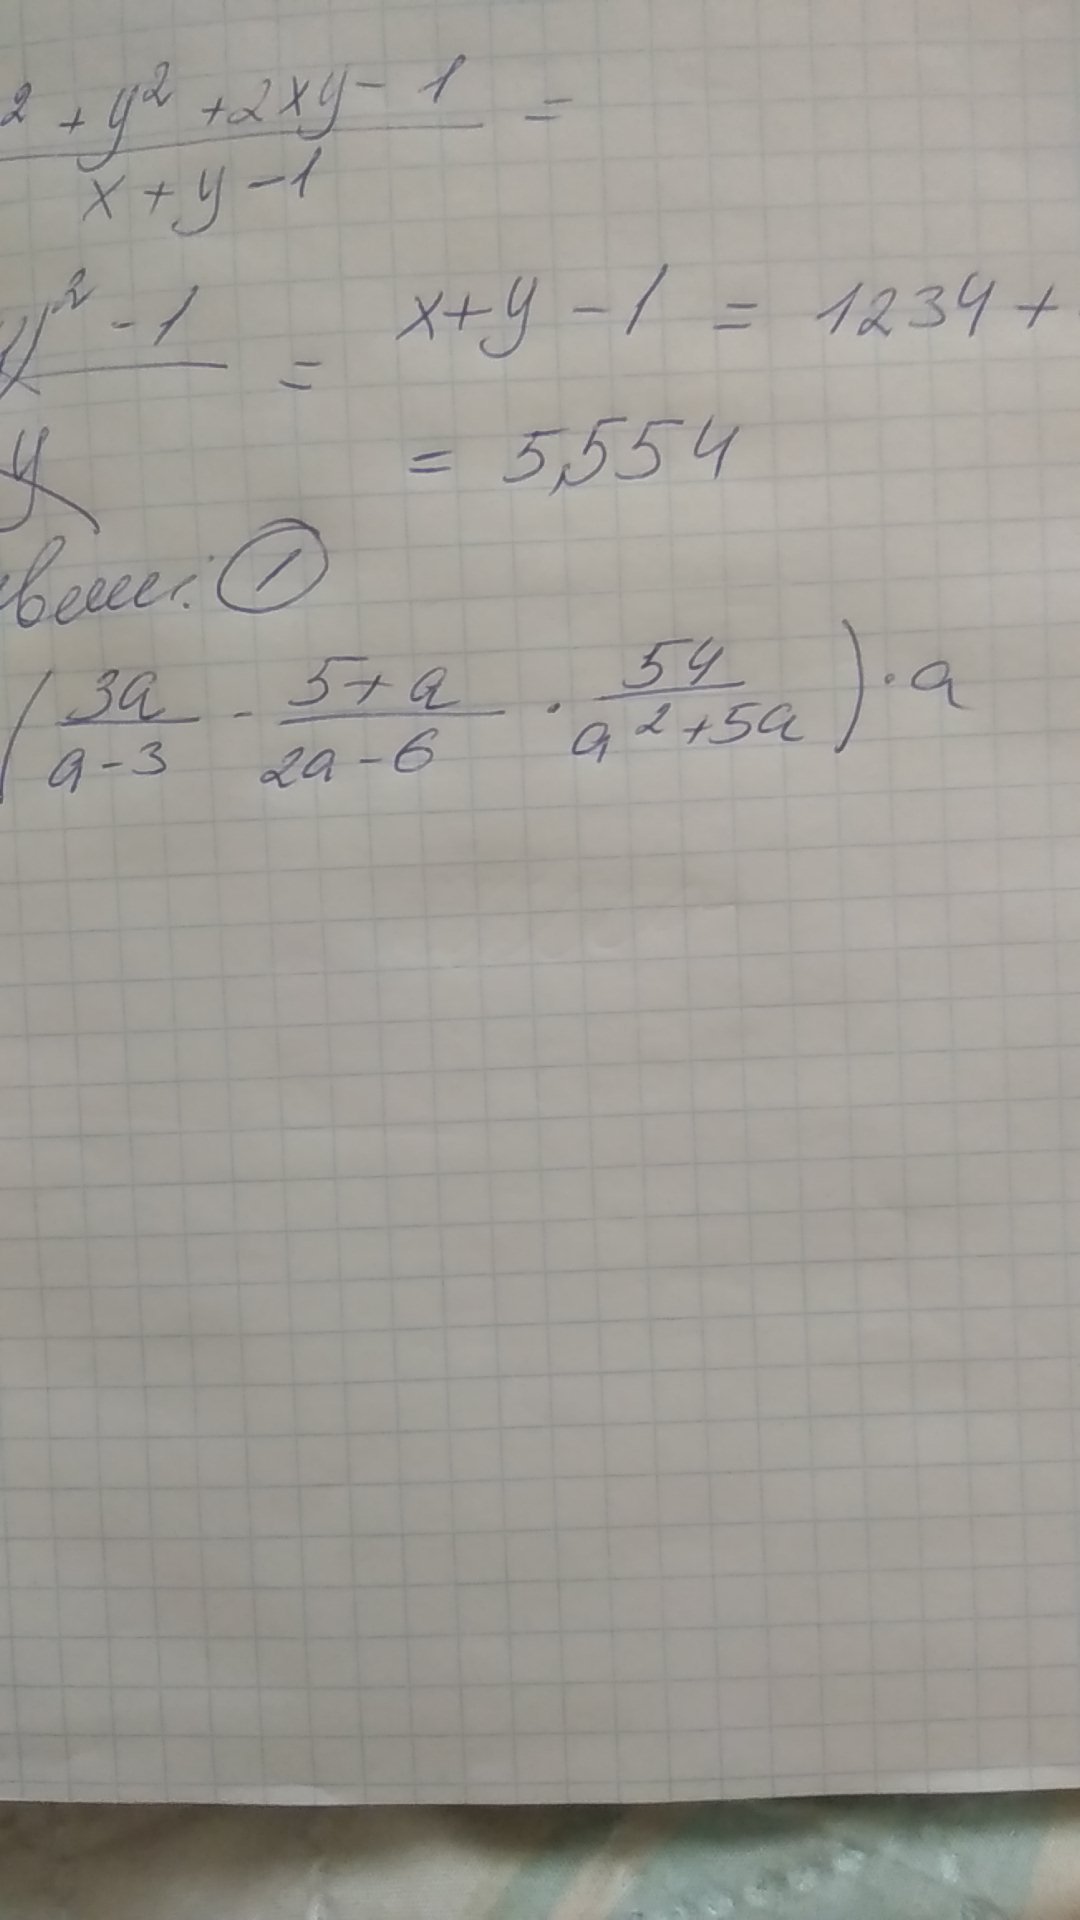 ² + y² + 2xy - 1 =
x + y - 1
y² - 1 = x + y - 1 = 1234 +
y = 5,554
1
(3a/(a-3) - (5+a)/(2a-6) · 54/(a²+5a)) · a